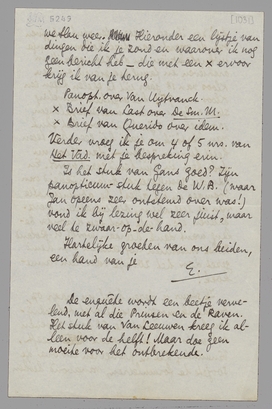 5247
[1931]
we dan wee. Hieronder een lijstje van
dingen die ik je zond en waarover ik nog
geen bericht heb – die met een × ervoor
krijg ik van je terug.
Panopt. over Van Uytvanck.
× Brief van Last over De Sm. M.
× Brief van Querido over idem.
Verder vroeg ik je om 4 of 5 nrs. van
Het Vad. met je bespreking erin.
Is het stuk van Gans goed? Zijn
panopticum-stuk tegen De W.B. (waar
Jan opeens zeer ontstemd over was!)
vond ik bij lezing wel zeer juist, maar
veel te zwaar-op-de-hand.
Hartelijke groeten van ons beiden,
een hand van je
E.
De enquête wordt een beetje verve-
lend, met al die Prinsen en de Raven.
Het stuk van Van Leeuwen kreeg ik al-
leen voor de helft! Maar doe geen
moeite voor het ontbrekende.